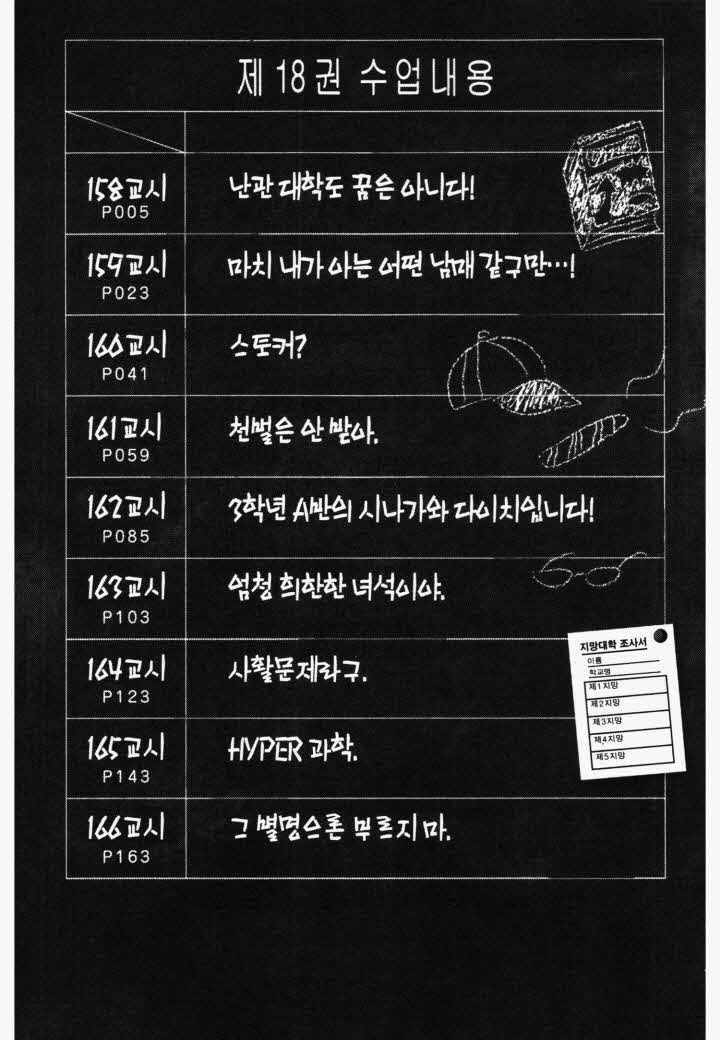 제 18 권 수업내용
158교시
P005
난관 대학도 꿈은 아니다!
159교시
P023
마치 내가 아는 어떤 남매 같구만…!
160교시
P041
스토커?
161교시
P059
천벌은 안 받아.
162교시
P085
3학년 A반의 시나가와 다이치입니다!
163교시
P103
엄청 희한한 녀석이야.
164교시
P123
사활문제라구.
165교시
P143
HYPER 과학.
166교시
P163
그 별명으론 부르지 마.
지망대학 조사서
이름
학교명
제1지망
제2지망
제3지망
제4지망
제5지망